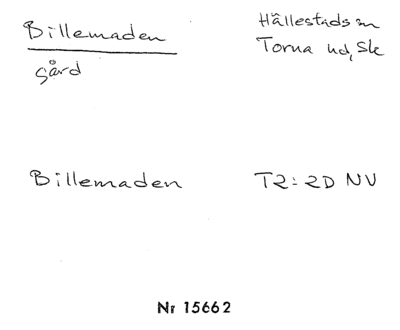 Billemaden
gård
Hållestads sn
Torna hd, Sk
Billemaden T2:2D NV
Nr 15662